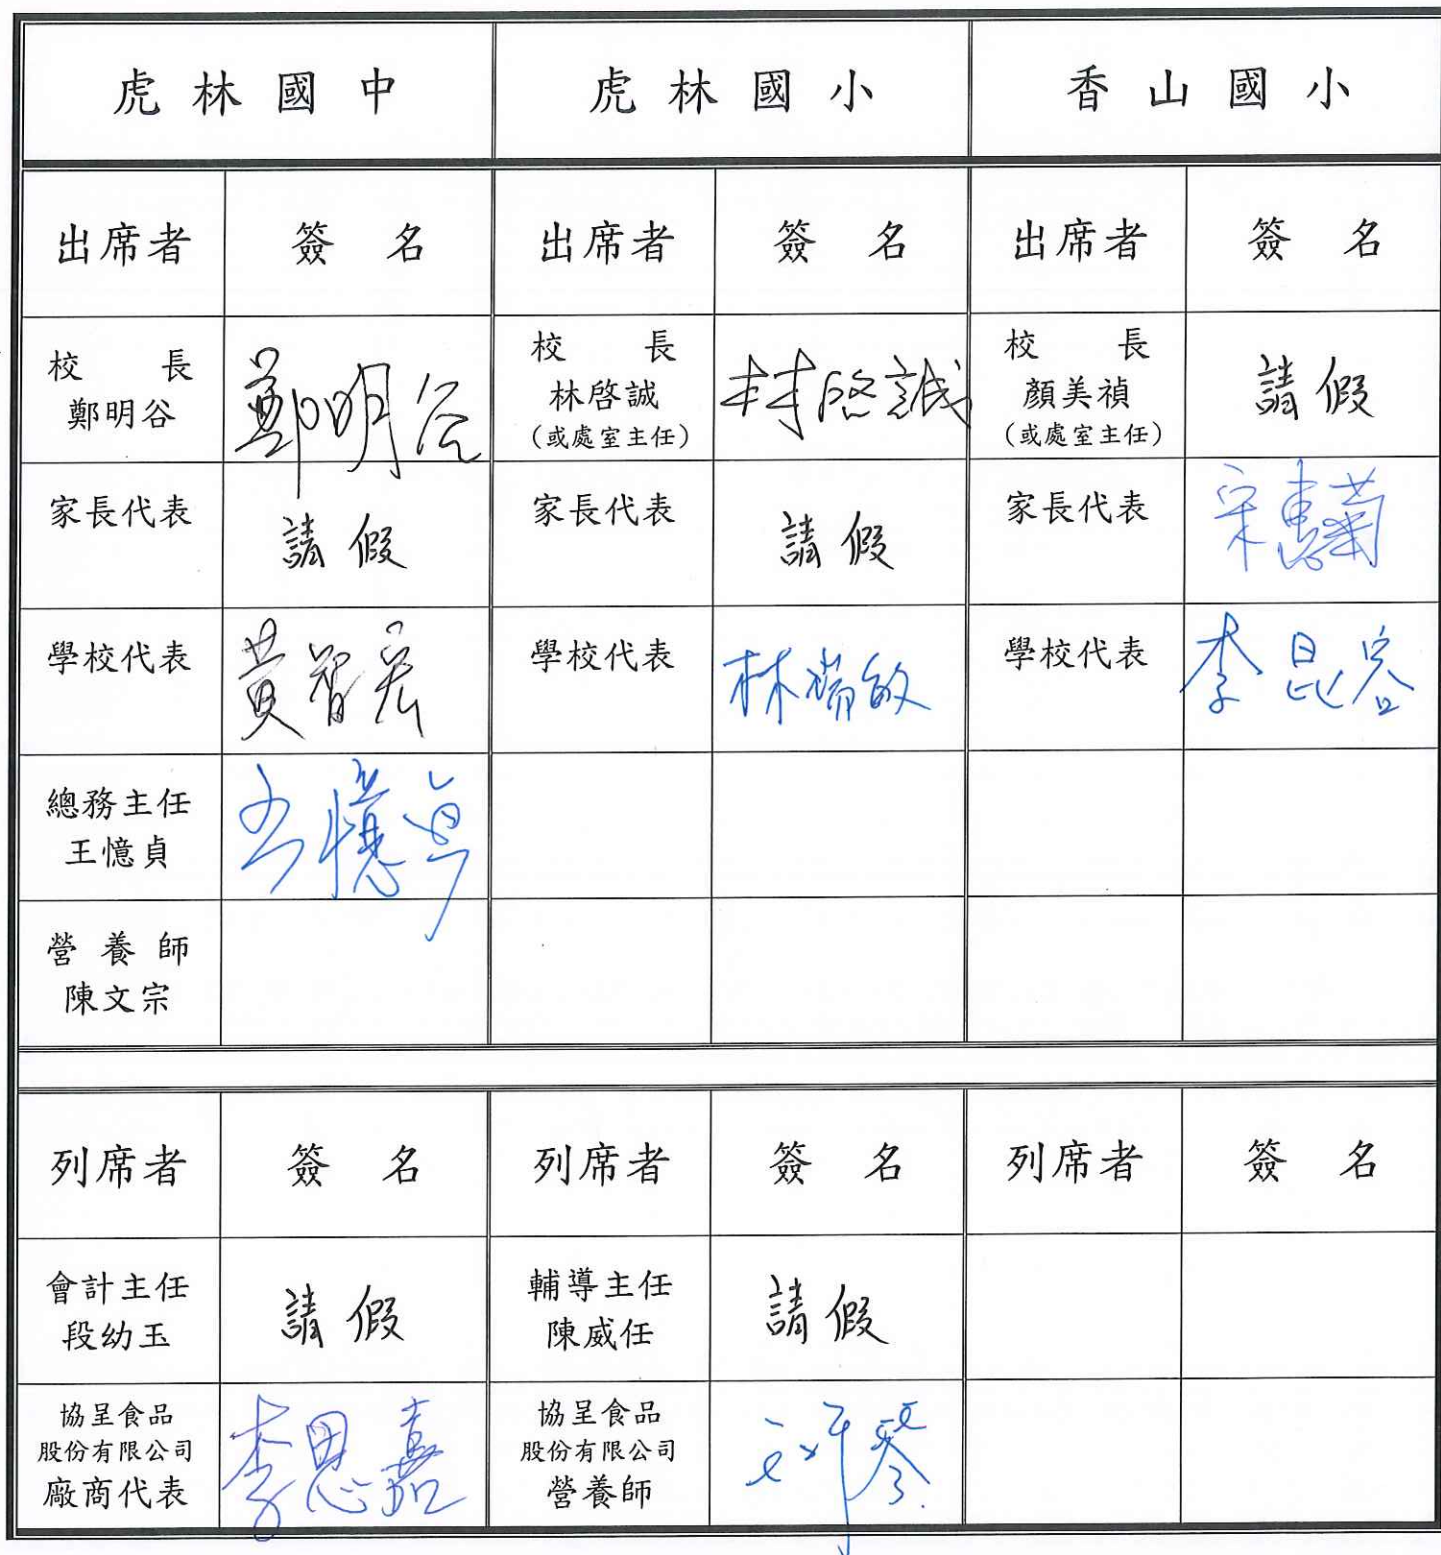 虎林國中 虎林國小 香山國小
出席者 簽名 出席者 簽名 出席者 簽名
校長 鄭明谷 鄭明谷 校長 林啓誠 (或處室主任) 林啓誠 校長 顏美禎 (或處室主任) 請假
家長代表 請假 家長代表 請假 家長代表 宋惠菊
學校代表 黃智宏 學校代表 林瑞敏 學校代表 李昆容
總務主任 王憶貞 王憶貞
營養師 陳文宗
列席者 簽名 列席者 簽名 列席者 簽名
會計主任 段幼玉 請假 輔導主任 陳威任 請假
協呈食品 股份有限公司 廠商代表 李思嘉 協呈食品 股份有限公司 營養師